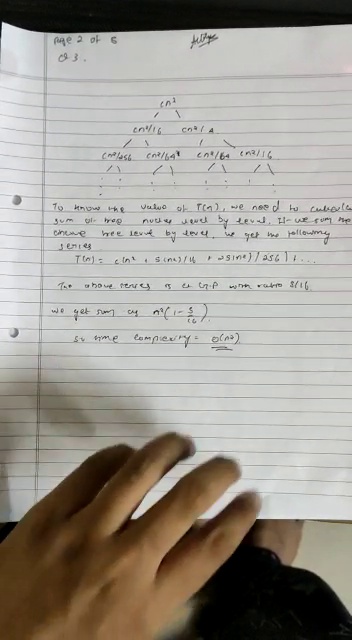 Page 2 of 5
Q3.
cn²
cn²/16 cn²/4
cn²/256 cn²/64 cn²/64 cn²/16
: : : : : :
To know the value of T(n), we need to calculate
sum of tree nodes level by level. If we sum the
above tree level by level, we get the following
series
T(n) = c(n² + 5(n²)/16 + 25(n²)/256) + ...
The above series is a G.P with ratio 5/16
we get sum as n²(1 - 5/16)
so time complexity = O(n²)